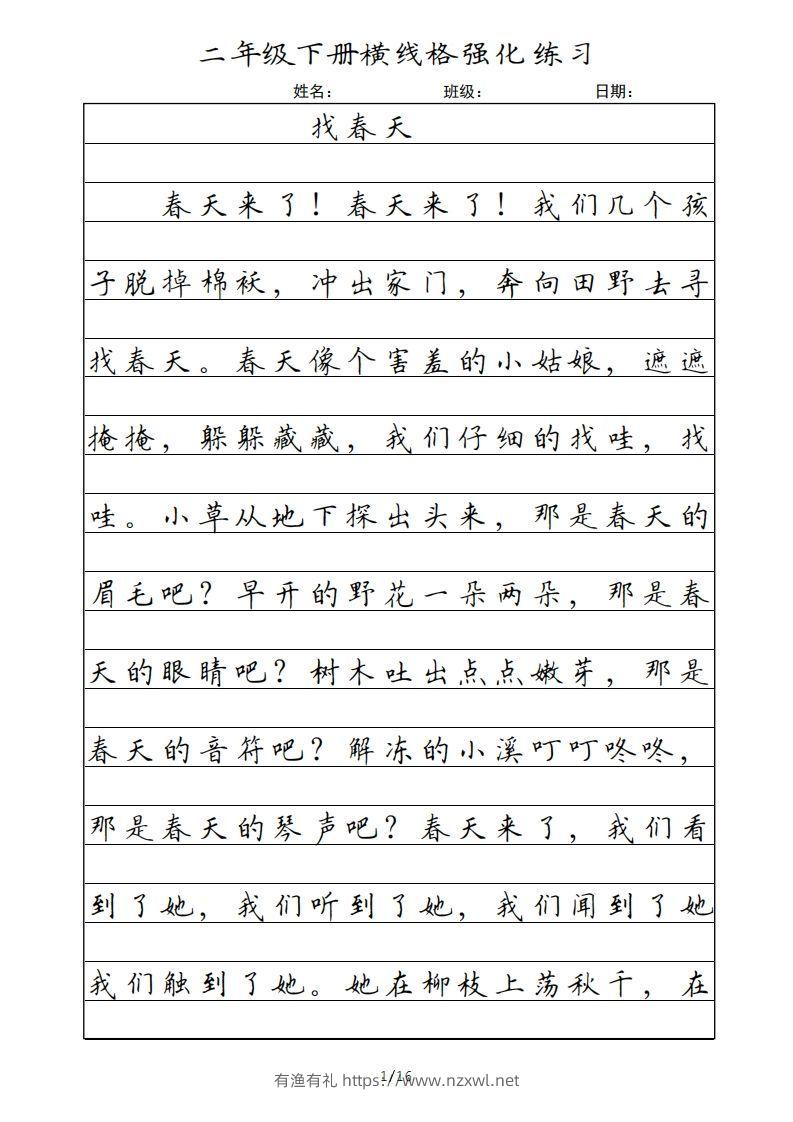 二年级下册横线格强化练习
姓名： 班级： 日期：
找春天
春天来了！春天来了！我们几个孩
子脱掉棉袄，冲出家门，奔向田野去寻
找春天。春天像个害羞的小姑娘，遮遮
掩掩，躲躲藏藏，我们仔细的找哇，找
哇。小草从地下探出头来，那是春天的
眉毛吧？早开的野花一朵两朵，那是春
天的眼睛吧？树木吐出点点嫩芽，那是
春天的音符吧？解冻的小溪叮叮咚咚，
那是春天的琴声吧？春天来了，我们看
到了她，我们听到了她，我们闻到了她
我们触到了她。她在柳枝上荡秋千，在
1/16
有渔有礼 https://www.nzxwl.net